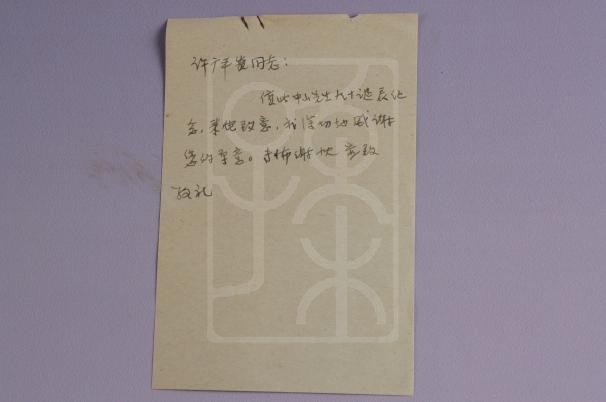 许广平同志：
值此中山先生九十诞辰纪
念，来电致意，我深切地感谢
您的厚意。专布谢忱 并致
敬礼